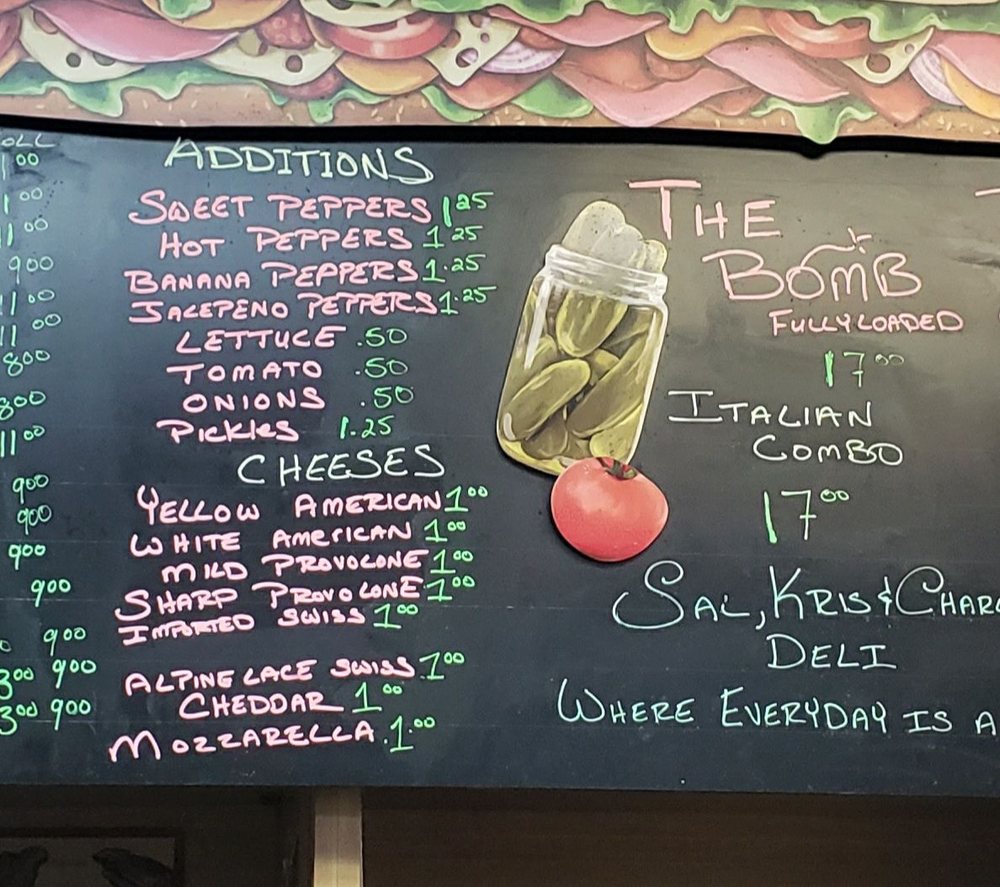 00
1 00
11 00
900
11 00
11 00
800
800
11 00
900
900
900
900
900
300 900
300 900
ADDITIONS
SWEET PEPPERS 1 25
HOT PEPPERS 1 25
BANANA PEPPERS 1.25
JALEPENO PEPPERS 1.25
LETTUCE .50
TOMATO .50
ONIONS .50
PICKLES 1.25
CHEESES
YELLOW AMERICAN 1 00
WHITE AMERICAN 1 00
MILD PROVOLONE 1 00
SHARP PROVOLONE 1 00
IMPORTED SWISS 1 00
ALPINE LACE SWISS 1 00
CHEDDAR 1 00
MOZZARELLA 1.00
THE
BOMB
FULLY LOADED
17 00
ITALIAN
COMBO
17 00
SAL, KRIS &
DELI
WHERE EVERYDAY IS A